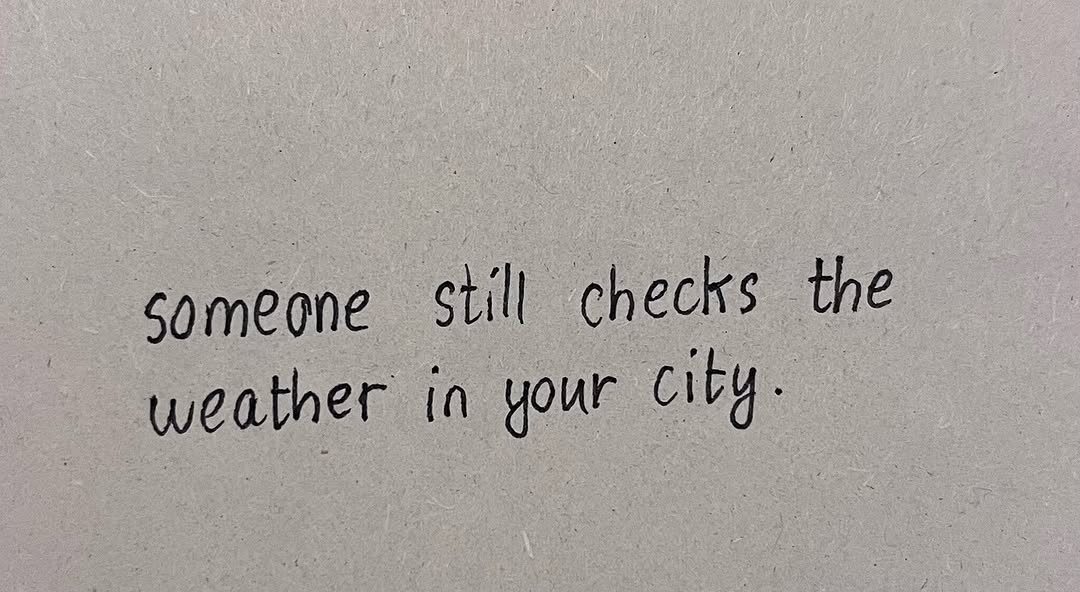 someone still checks the
weather in your city.